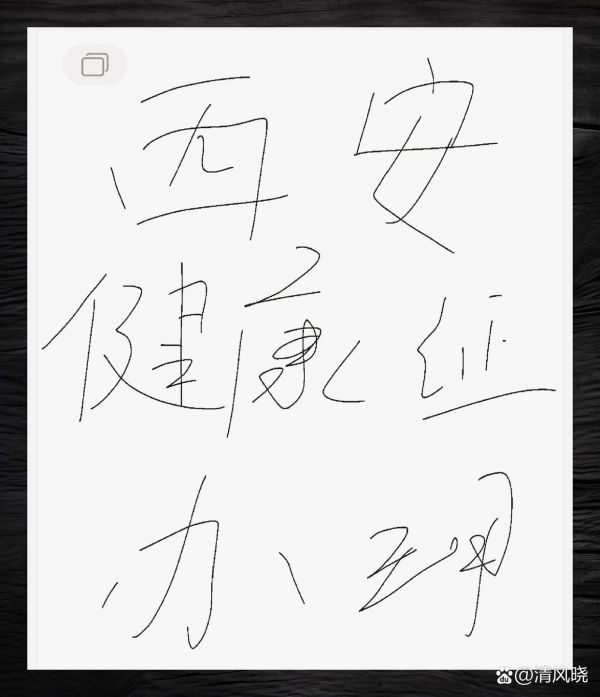 西安
健康证
办理
du @清风晓